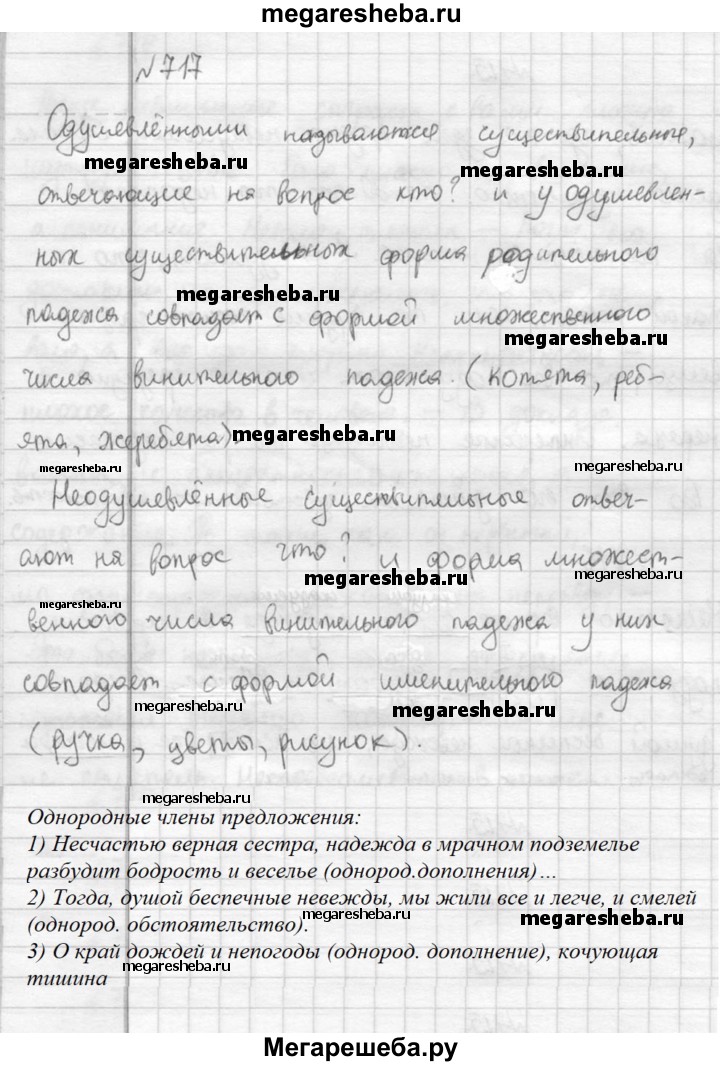 megaresheba.ru
№717
Одушевлёнными называются существительные,
megaresheba.ru
megaresheba.ru
отвечающие на вопрос кто? и у одушевлен-
ных существительных форма родительного
megaresheba.ru
падежа совпадает с формой множественного
megaresheba.ru
числа винительного падежа. (котята, реб-
ята, жеребята).
megaresheba.ru
megaresheba.ru
megaresheba.ru
Неодушевлённые существительные отвеч-
ают на вопрос что? и форма множест-
megaresheba.ru
megaresheba.ru
megaresheba.ru
венного числа винительного падежа у них
megaresheba.ru
совпадает с формой именительного падежа
megaresheba.ru
megaresheba.ru
(ручка, цветы, рисунок).
megaresheba.ru
Однородные члены предложения:
1) Несчастью верная сестра, надежда в мрачном подземелье
разбудит бодрость и веселье (однород.дополнения)…
2) Тогда, душой беспечные невежды, мы жили все и легче, и смелей
(однород. обстоятельство).
megaresheba.ru
megaresheba.ru
3) О край дождей и непогоды (однород. дополнение), кочующая
megaresheba.ru
тишина
Мегарешеба.ру